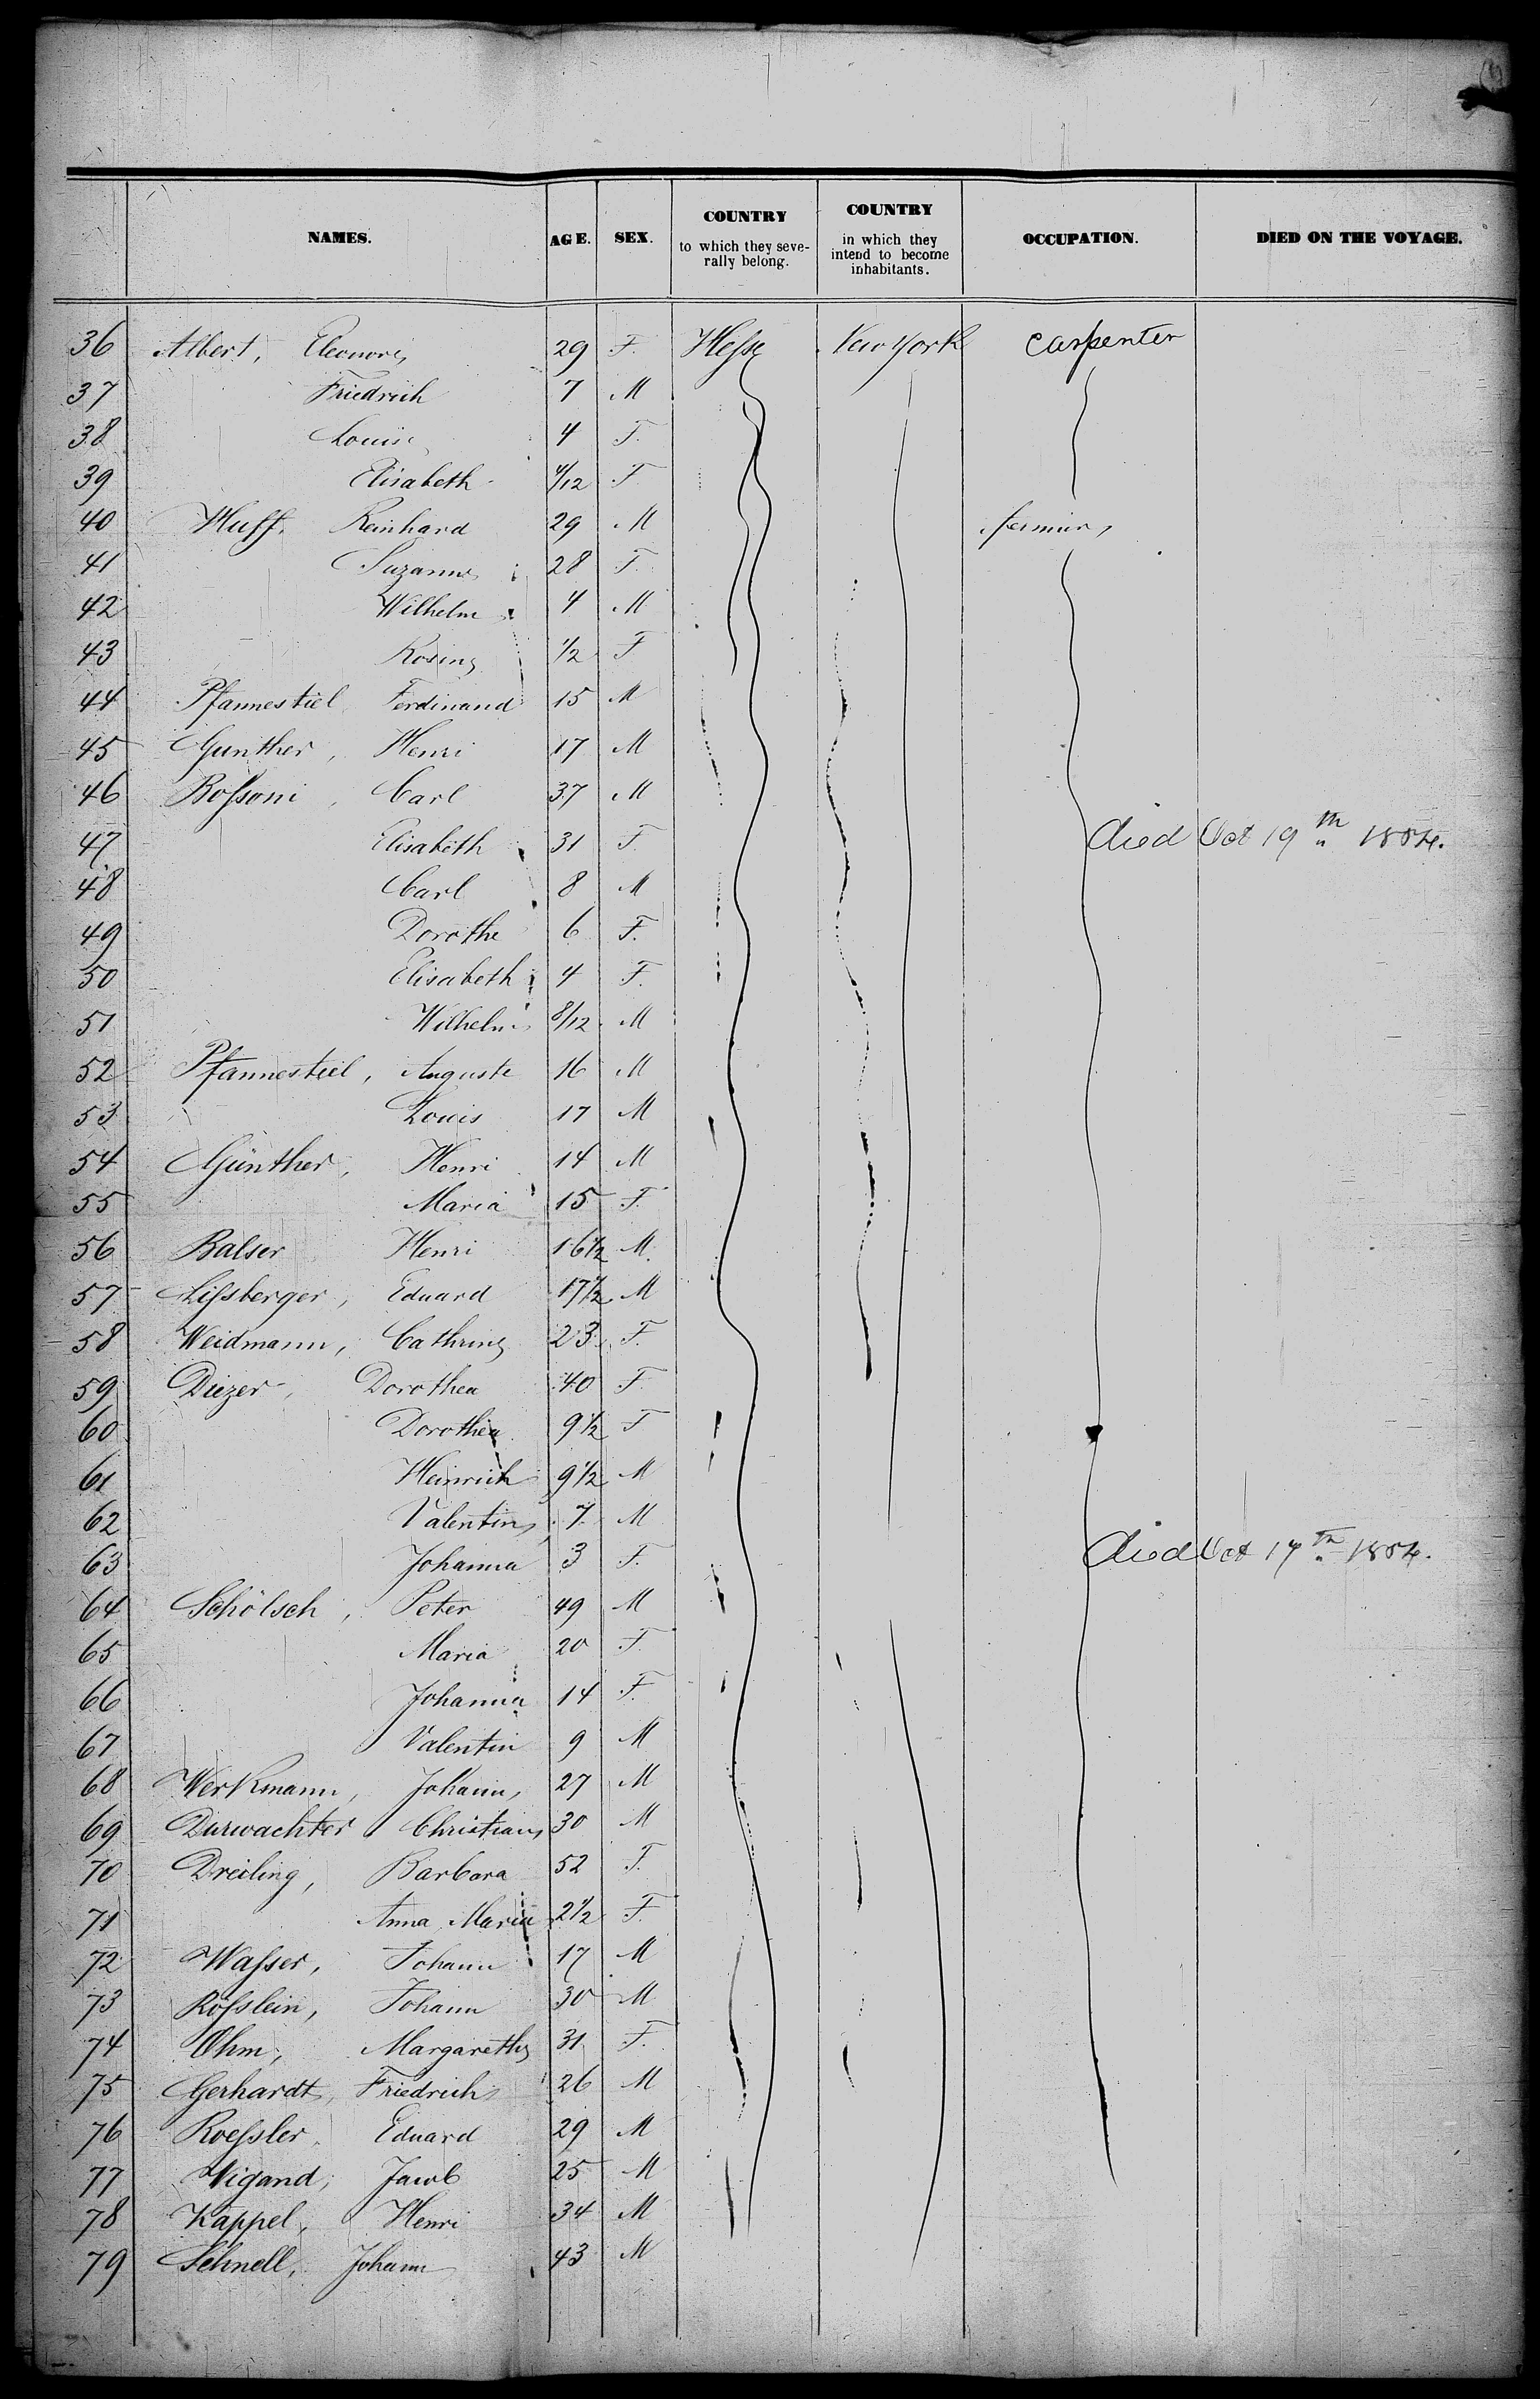 NAMES. AGE. SEX. COUNTRY to which they seve- rally belong. COUNTRY in which they intend to become inhabitants. OCCUPATION. DIED ON THE VOYAGE.
36 Albert, Eleonore 29 F. Hesse New York carpenter
37 Friedrich 7 M
38 Louise 4 F.
39 Elisabeth 4/12 F
40 Huff, Reinhard 29 M
41 Suzanne 28 F.
42 Wilhelm 4 M
43 Rosine 1/2 F
44 Pfannestiel Ferdinand 15 M
45 Gunther, Henri 17 M
46 Bossoni, Carl 37 M
47 Elisabeth 31 F. died Oct 19th 1854.
48 Carl 8 M
49 Dorothe 6 F.
50 Elisabeth 4 F.
51 Wilhelm 8/12 M
52 Pfannestiel, Auguste 16 M
53 Louis 17 M
54 Günther, Henri 14 M
55 Maria 15 F.
56 Balser Henri 16 1/2 M.
57 Lissberger, Eduard 17 1/2 M
58 Weidmann, Cathrine 23 F.
59 Diezer, Dorothea 40 F.
60 Dorothea 9 1/2 F
61 Heinrich 9 1/2 M
62 Valentin 7 M
63 Johanna 3 F. died Oct 17th 1854.
64 Schölsch, Peter 49 M
65 Maria 20 F.
66 Johanna 14 F.
67 Valentin 9 M
68 Werkmann, Johann 27 M
69 Durwachter Christian 30 M
70 Dreiling, Barbara 52 F.
71 Anna Maria 2 1/2 F.
72 Wasser, Johann 17 M
73 Rösslein, Johann 30 M
74 Ohm, Margarethe 31 F.
75 Gerhardt, Friedrich 26 M
76 Roessler, Eduard 29 M
77 Wigand, Jacob 25 M
78 Kappel, Henri 34 M
79 Schnell, Johann 43 M